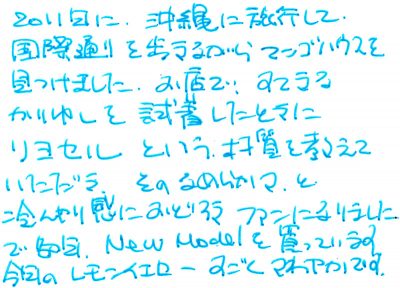 2011年に、沖縄に旅行して、
国際通りを歩きながら マンゴハウスを
見つけました。お店で、すてきな
かりゆしを 試着したときに
リヨセル という、材質を教えて
いただき、そのなめらかさ、と
冷んやり感におどろき ファンになりました
で毎回、New Modelを買っています
今回の レモンイエロー すごく さわやかです。